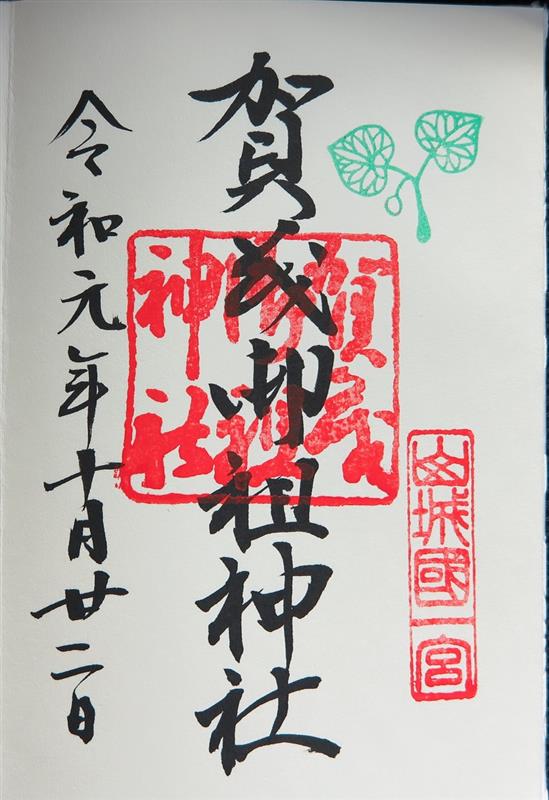 山城國一宮
賀茂御祖神社
賀茂
御祖
神社
令和元年十月廿二日